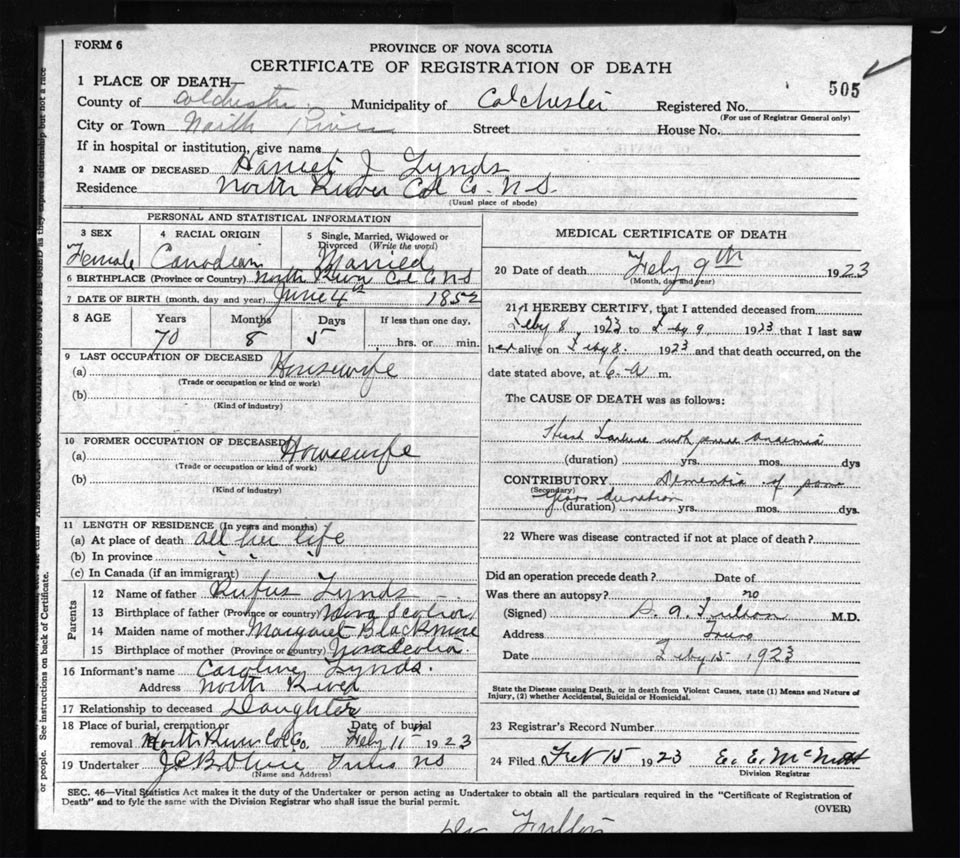 FORM 6
PROVINCE OF NOVA SCOTIA
CERTIFICATE OF REGISTRATION OF DEATH
505
1 PLACE OF DEATH—
County of Colchester Municipality of Colchester Registered No.
(For use of Registrar General only)
City or Town North River Street House No.
If in hospital or institution, give name
2 NAME OF DECEASED Harriet J Lynds
Residence North River Col Co. N S.
(Usual place of abode)
PERSONAL AND STATISTICAL INFORMATION
3 SEX 4 RACIAL ORIGIN 5 Single, Married, Widowed or
Divorced (Write the word)
Female Canadian Married
6 BIRTHPLACE (Province or Country) North River Col Co N S
7 DATE OF BIRTH (month, day and year) June 4th 1852
8 AGE Years Months Days If less than one day,
70 8 5 hrs. or min.
9 LAST OCCUPATION OF DECEASED
(a) Housewife
(Trade or occupation or kind or work)
(b)
(Kind of industry)
10 FORMER OCCUPATION OF DECEASED
(a) Housewife
(Trade or occupation or kind of work)
(b)
(Kind of industry)
11 LENGTH OF RESIDENCE (In years and months)
(a) At place of death all her life
(b) In province " " "
(c) In Canada (if an immigrant)
Parents
12 Name of father Rufus Lynds
13 Birthplace of father (Province or country) Nova Scotia
14 Maiden name of mother Margaret Blackmore
15 Birthplace of mother (Province or country) Nova Scotia
16 Informant's name Caroline Lynds.
Address North River
17 Relationship to deceased Daughter
18 Place of burial, cremation or Date of burial
removal North River Col Co. Feby 11th 1923
19 Undertaker Truro NS
(Name and Address)
MEDICAL CERTIFICATE OF DEATH
20 Date of death Feby 9th 1923
(Month, day and year)
21 I HEREBY CERTIFY, that I attended deceased from
Feby 8, 1923 to Feby 9 1923 that I last saw
her alive on Feby 8. 1923 and that death occurred, on the
date stated above, at 6. a m.
The CAUSE OF DEATH was as follows:
Heart Failure with anaemia
(duration) yrs. mos. dys
CONTRIBUTORY Dementia of some
(Secondary)
years duration
(duration) yrs. mos. dys.
22 Where was disease contracted if not at place of death?
Did an operation precede death? Date of
Was there an autopsy? no
(Signed) Fulton M.D.
Address Truro
Date Feby 15 1923
State the Disease causing Death, or in death from Violent Causes, state (1) Means and Nature of
Injury, (2) whether Accidental, Suicidal or Homicidal.
23 Registrar's Record Number
24 Filed Feb 15 1923 E. E. McNutt
Division Registrar
SEC. 46—Vital Statistics Act makes it the duty of the Undertaker or person acting as Undertaker to obtain all the particulars required in the "Certificate of Registration of
Death" and to fyle the same with the Division Registrar who shall issue the burial permit.
(OVER)
Dr Fulton
or people. See instructions on back of Certificate.